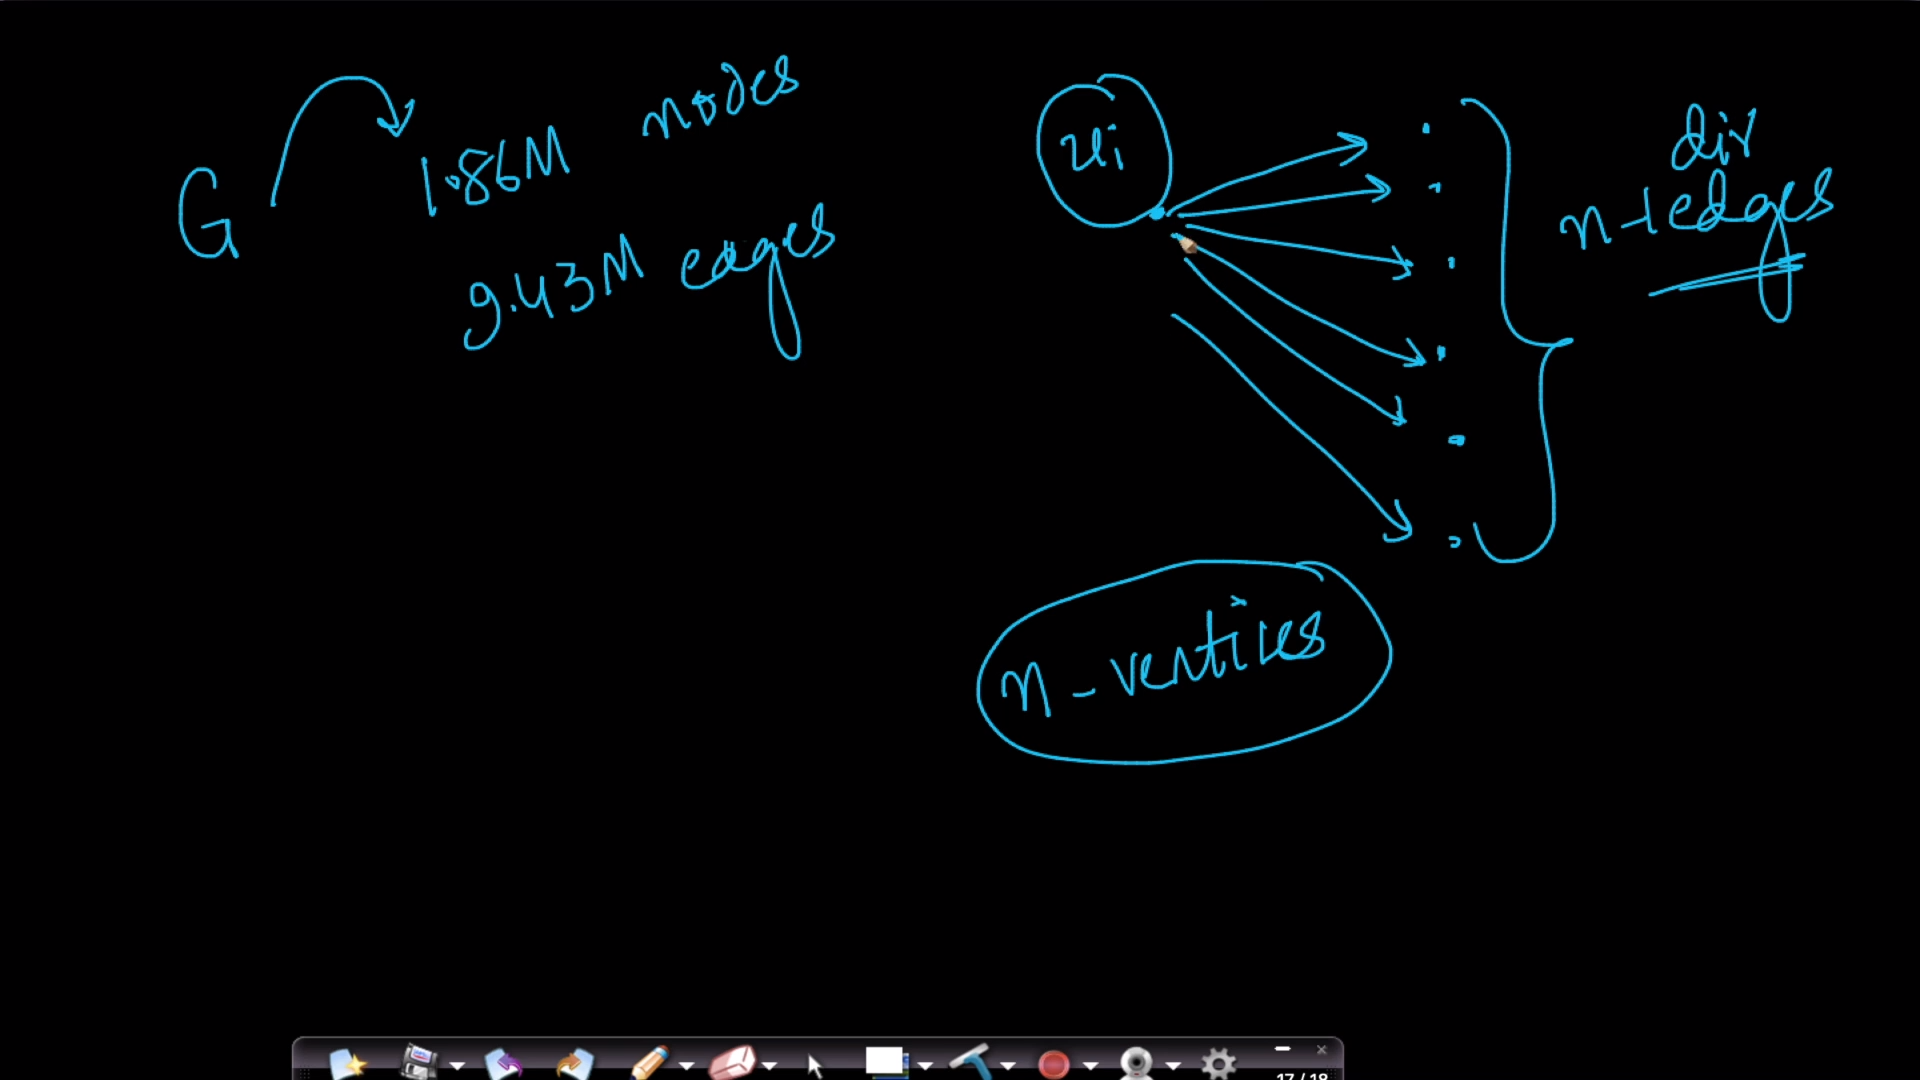 G
1.86M nodes
9.43M edges
ui
dir
n-1 edges
n-vertices
17 / 18